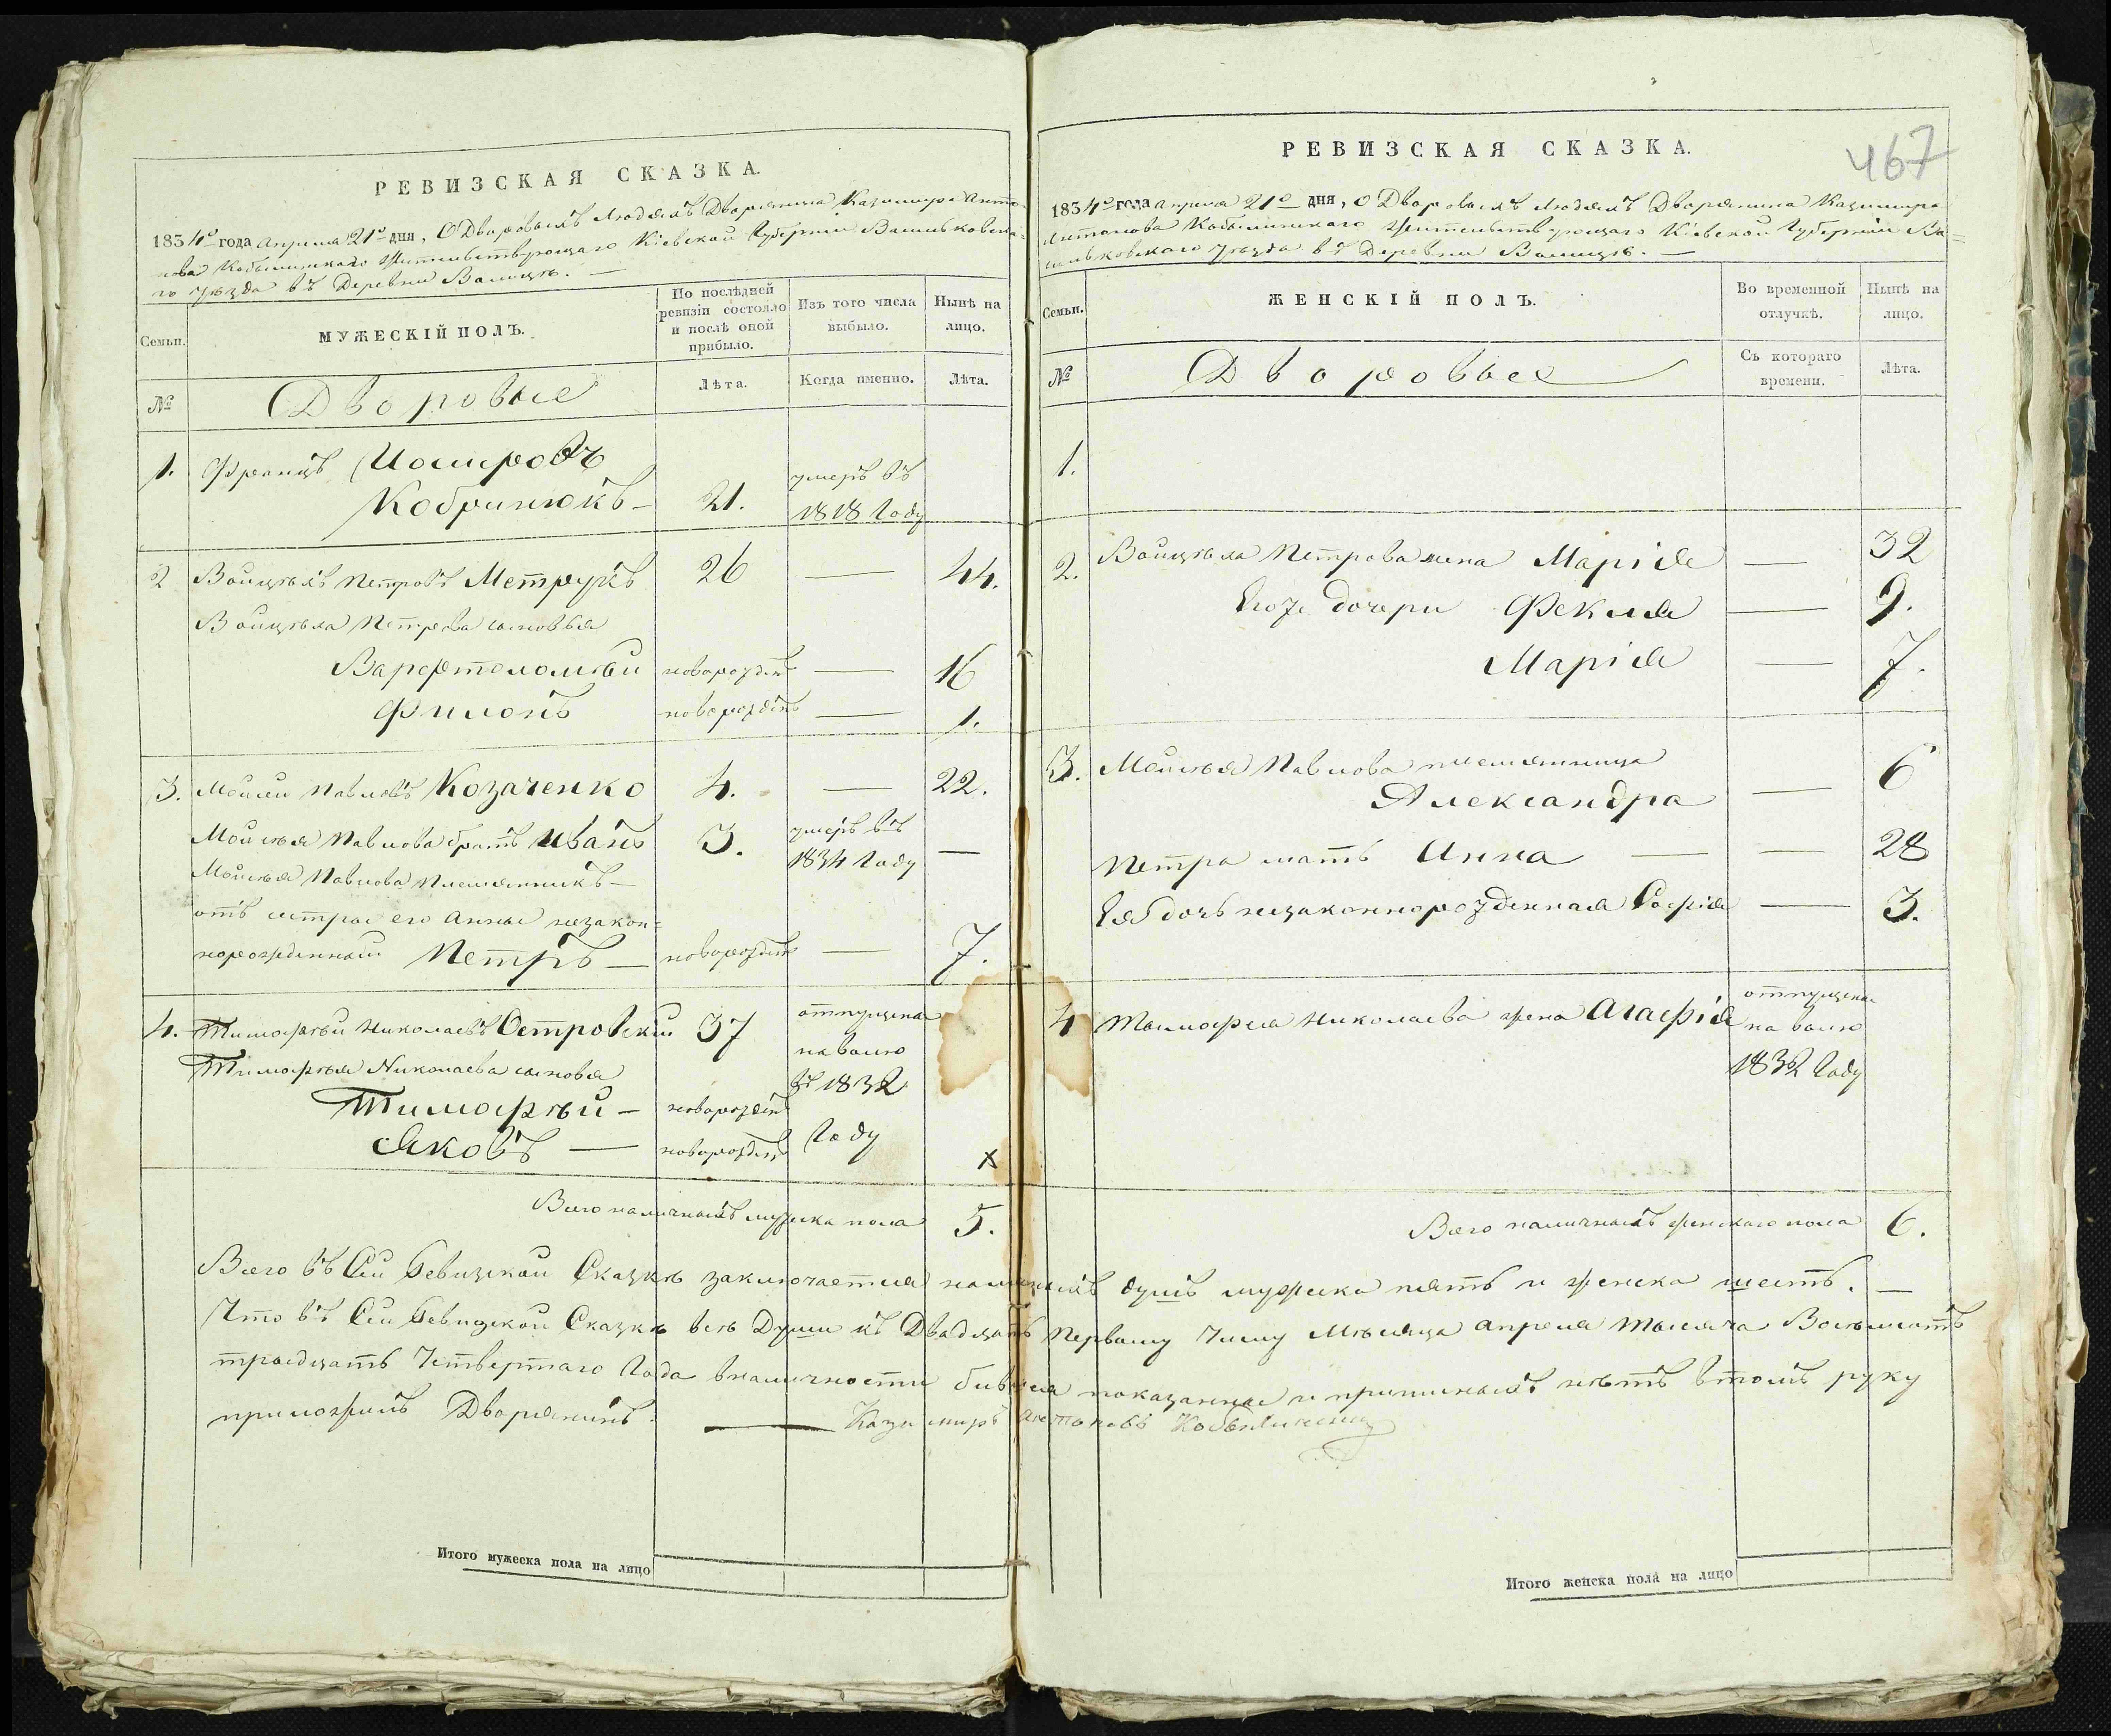 РЕВИЗСКАЯ СКАЗКА.
1834го года Апреля 21го дня, О Дворовыхъ Людяхъ Дворянина Казимира Анто-
нова Кобылинскаго Жительствующаго Кіевской Губерніи Васильковска-
го уѣзда въ Деревни
Семьи.
МУЖЕСКІЙ ПОЛЪ.
По послѣдней ревизіи состояло и послѣ оной прибыло.
Изъ того числа выбыло.
Нынѣ на лицо.
№
Дворовые
Лѣта.
Когда именно.
Лѣта.
1. Францъ
Кобринюкъ 21. умеръ въ 1818 Году
2 Войцѣхъ Петровъ Метрукъ 26 — 44.
Войцѣха Петрова сыновья
Варфтоломѣй новорожден — 16
Филонъ новорожден — 1.
3. Мойсей Павловъ Козаченко 4. — 22.
Мойсѣя Павлова братъ Иванъ 3. умеръ въ 1834 Году —
Мойсѣя Павлова Племянникъ —
отъ сестры его Анны незакон=
норожденный Петръ — новорожден — 7.
4. Тимофѣй Николаевъ Островскій 37 отпущены на волю въ 1832 Году
Тимофѣя Николаева сыновья
Тимофѣй — новорожден
Яковъ — новорожден
х
Всего наличныхъ мужска пола 5.
РЕВИЗСКАЯ СКАЗКА.
467
1834го года Апреля 21го дня, О Дворовыхъ Людяхъ Дворянина Казимира
Антонова Кобылинскаго Жительствующаго Кіевской Губерніи Ва=
сильковскаго уѣзда въ Деревни
Семьи.
ЖЕНСКІЙ ПОЛЪ.
Во временной отлучкѣ.
Нынѣ на лицо.
№
Дворовые
Съ котораго времени.
Лѣта.
1.
2. Войцѣха Петрова жена Марія — 32
Его дочери Фекля — 9.
Марія — 7.
3. Мойсѣя Павлова племянница
Александра — 6
Петра мать Анна — — 28
Ея дочь незаконнорожденная Софія — 3.
4 Тымофея Николаева жена Агафія отпущена на волю
1832 Году
Всего наличныхъ женскаго пола 6.
Всего въ Сей Ревизской Сказкѣ заключается наличныхъ душъ мужска пять и женска шесть. —
Что въ Сей Ревизской Сказкѣ всѣ Души къ Двадцать Первому Числу Мѣсяца Апреля Тысяча Восѣмсотъ
трыдцать Четвертаго Года вналичности бывшея показанные и прописныхъ нѣтъ втомъ руку
приложилъ Дворянинъ — Казимиръ Антоновъ Кобылинскій
Итого мужеска пола на лицо
Итого женска пола на лицо